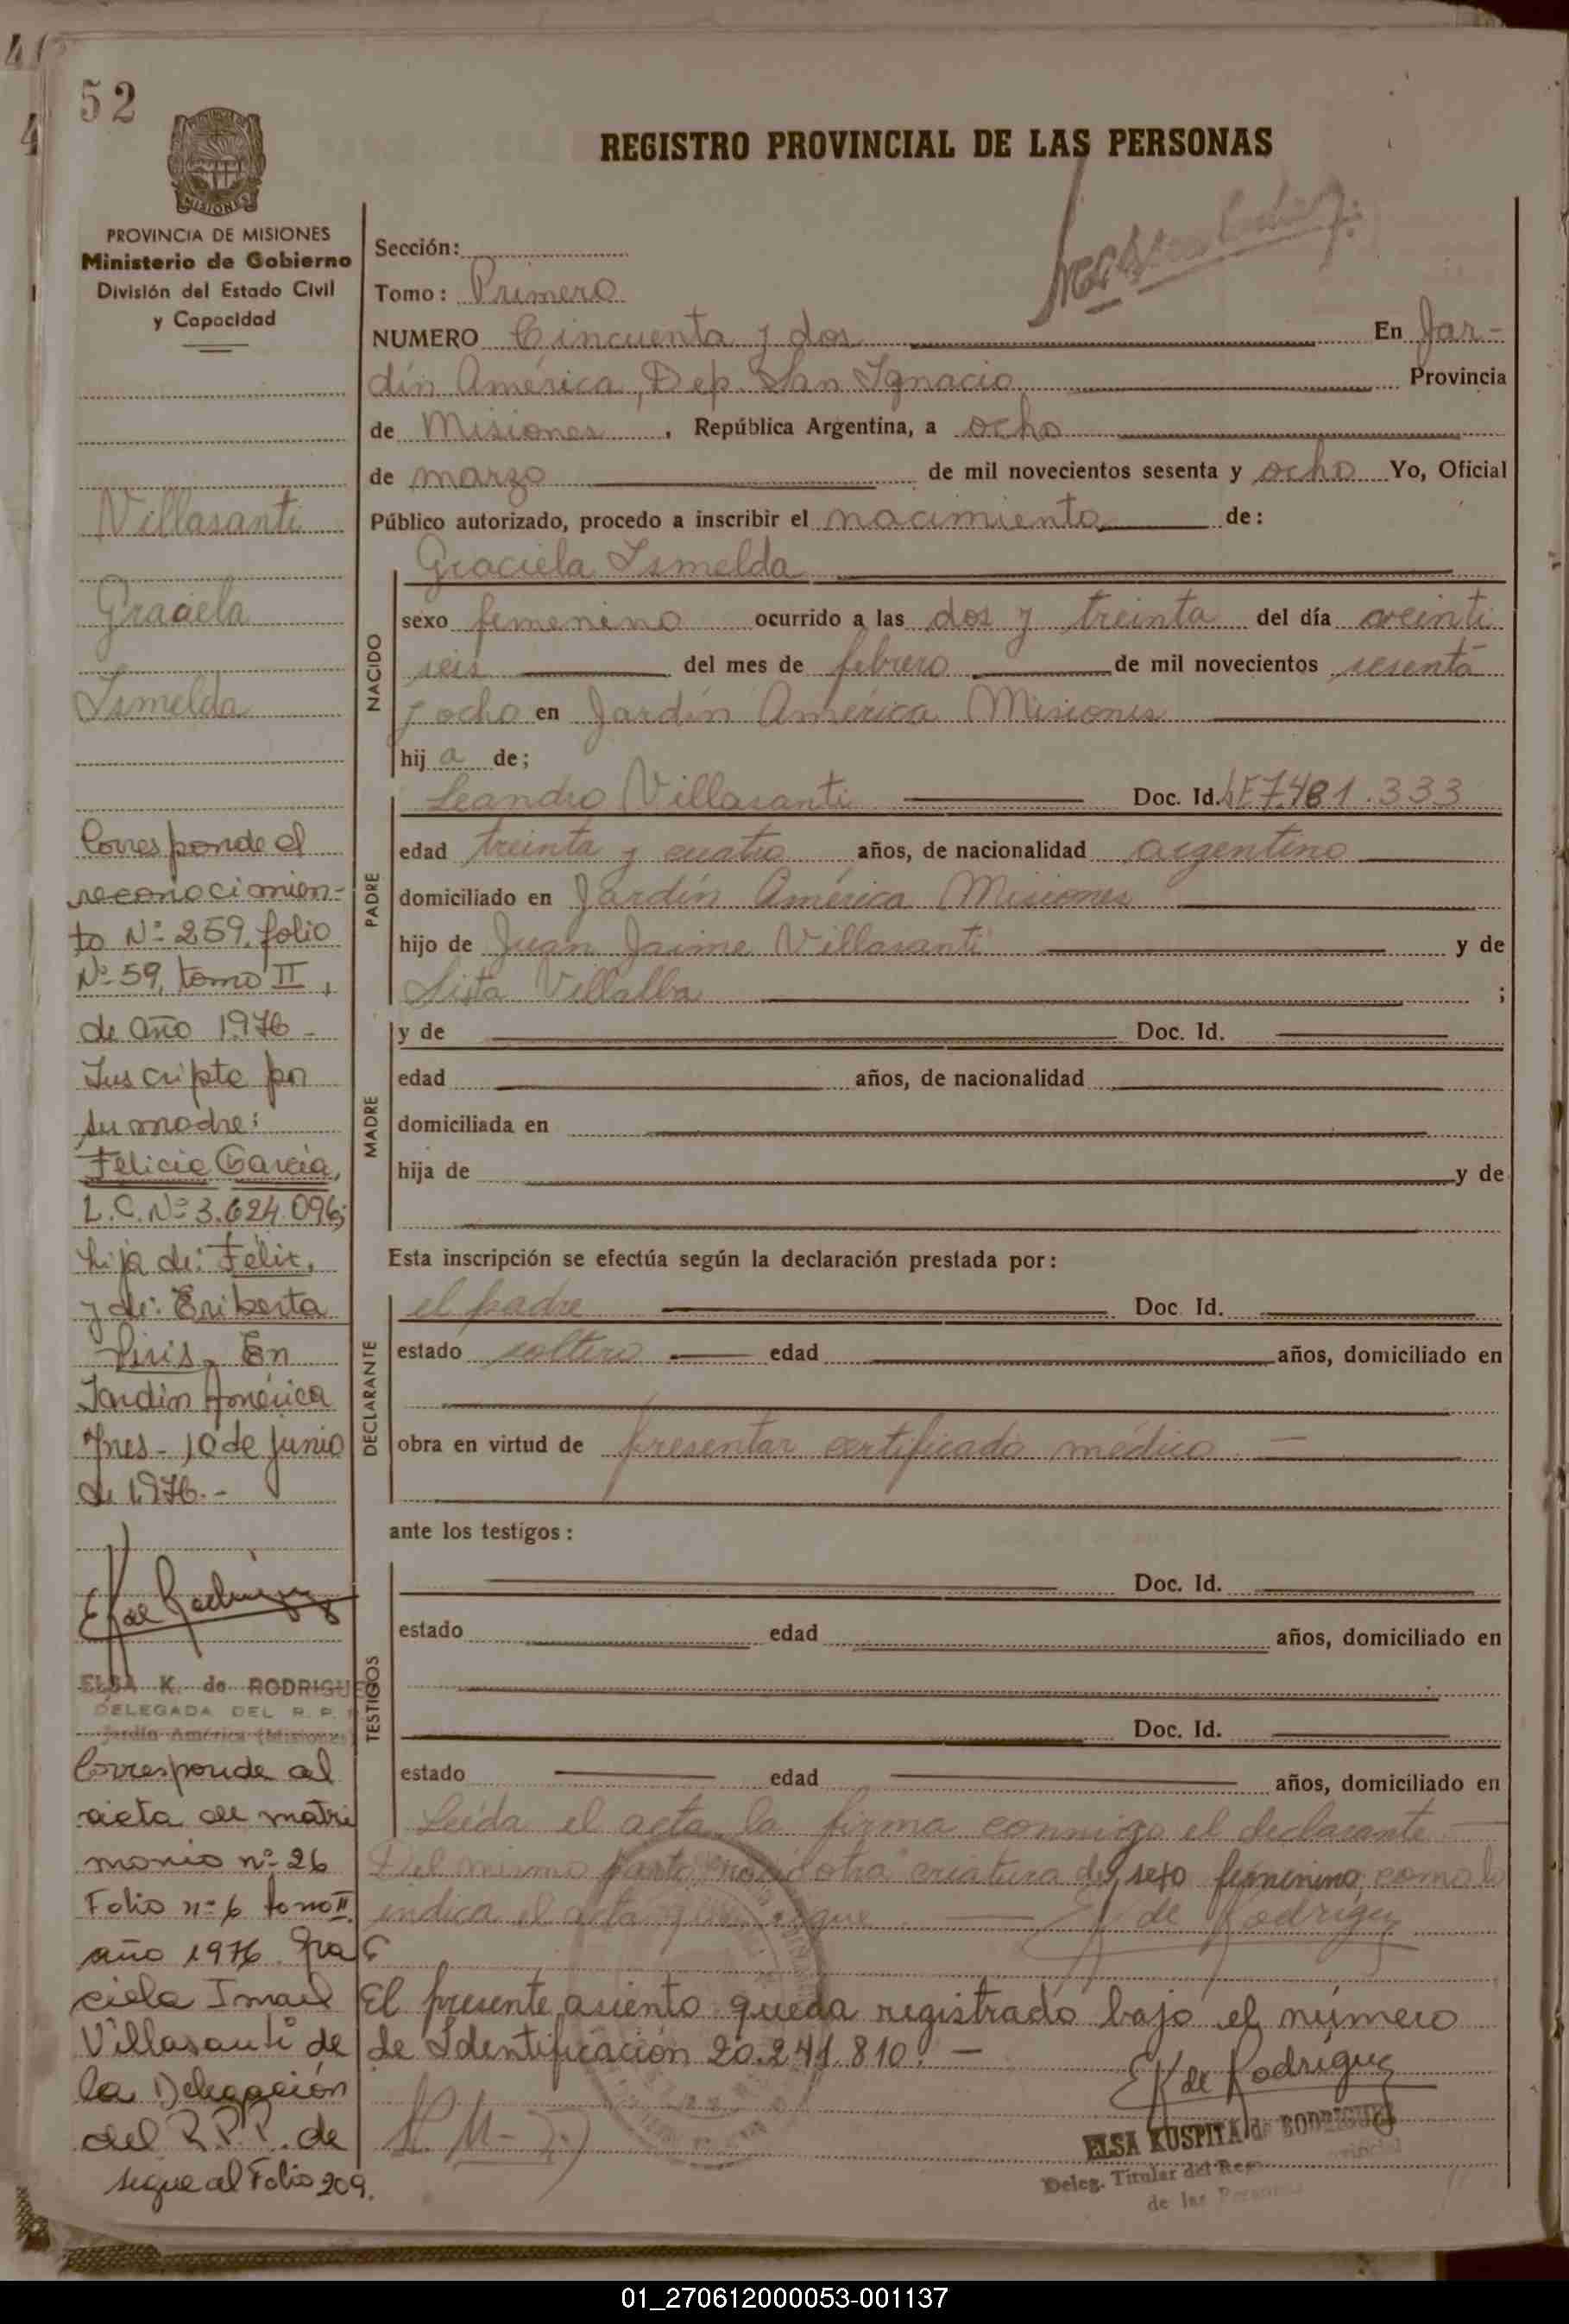 52
REGISTRO PROVINCIAL DE LAS PERSONAS
MISIONES
PROVINCIA DE MISIONES
Ministerio de Gobierno
División del Estado Civil
y Capacidad
Villasanti
Graciela
Ismelda
Corresponde al
reconocimien-
to Nº 259, folio
Nº 59, tomo II,
de año 1976-
Suscripto por
su madre:
Felicia García,
L.C. Nº 3.624.096;
hija de: Félix,
y de: Eriberta
Piris. En
Jardín América
Mnes- 10 de junio
de 1976.-
ELSA K. de RODRIGUEZ
DELEGADA DEL R. P.
Jardín América (Misiones)
Corresponde al
acta de matri
monio nº 26
Folio nº 6 tomo II
año 1976. Gra
ciela Ismel
Villasanti de
la Delegación
del R.P.P. de
sigue al Folio 209.
Sección:
Tomo: Primero
NUMERO Cincuenta y dos En Jar-
dín América, Dep. San Ignacio Provincia
de Misiones, República Argentina, a ocho
de marzo de mil novecientos sesenta y ocho Yo, Oficial
Público autorizado, procedo a inscribir el nacimiento de:
NACIDO
Graciela Ismelda
sexo femenino ocurrido a las dos y treinta del día veinti
seis del mes de febrero de mil novecientos sesenta
y ocho en Jardín América Misiones
hija de;
PADRE
Leandro Villasanti Doc. Id. 7.481.333
edad treinta y cuatro años, de nacionalidad argentino
domiciliado en Jardín América Misiones
hijo de Juan Jaime Villasanti y de
Sista Villalba ;
MADRE
y de Doc. Id.
edad años, de nacionalidad
domiciliada en
hija de y de
Esta inscripción se efectúa según la declaración prestada por:
DECLARANTE
el padre Doc. Id.
estado soltero edad años, domiciliado en
obra en virtud de presentar certificado médico. -
ante los testigos:
TESTIGOS
Doc. Id.
estado edad años, domiciliado en
Doc. Id.
estado edad años, domiciliado en
Leída el acta la firma conmigo el declarante.
Del mismo parto nació otra criatura de sexo femenino, como lo
indica el acta que sigue. E K de Rodriguez
El presente asiento queda registrado bajo el número
de Identificación 20.241.810. -
EK de Rodriguez
ELSA KUSPITA de RODRIGUEZ
Deleg. Titular del Reg. Provincial
de las Personas
01_270612000053-001137